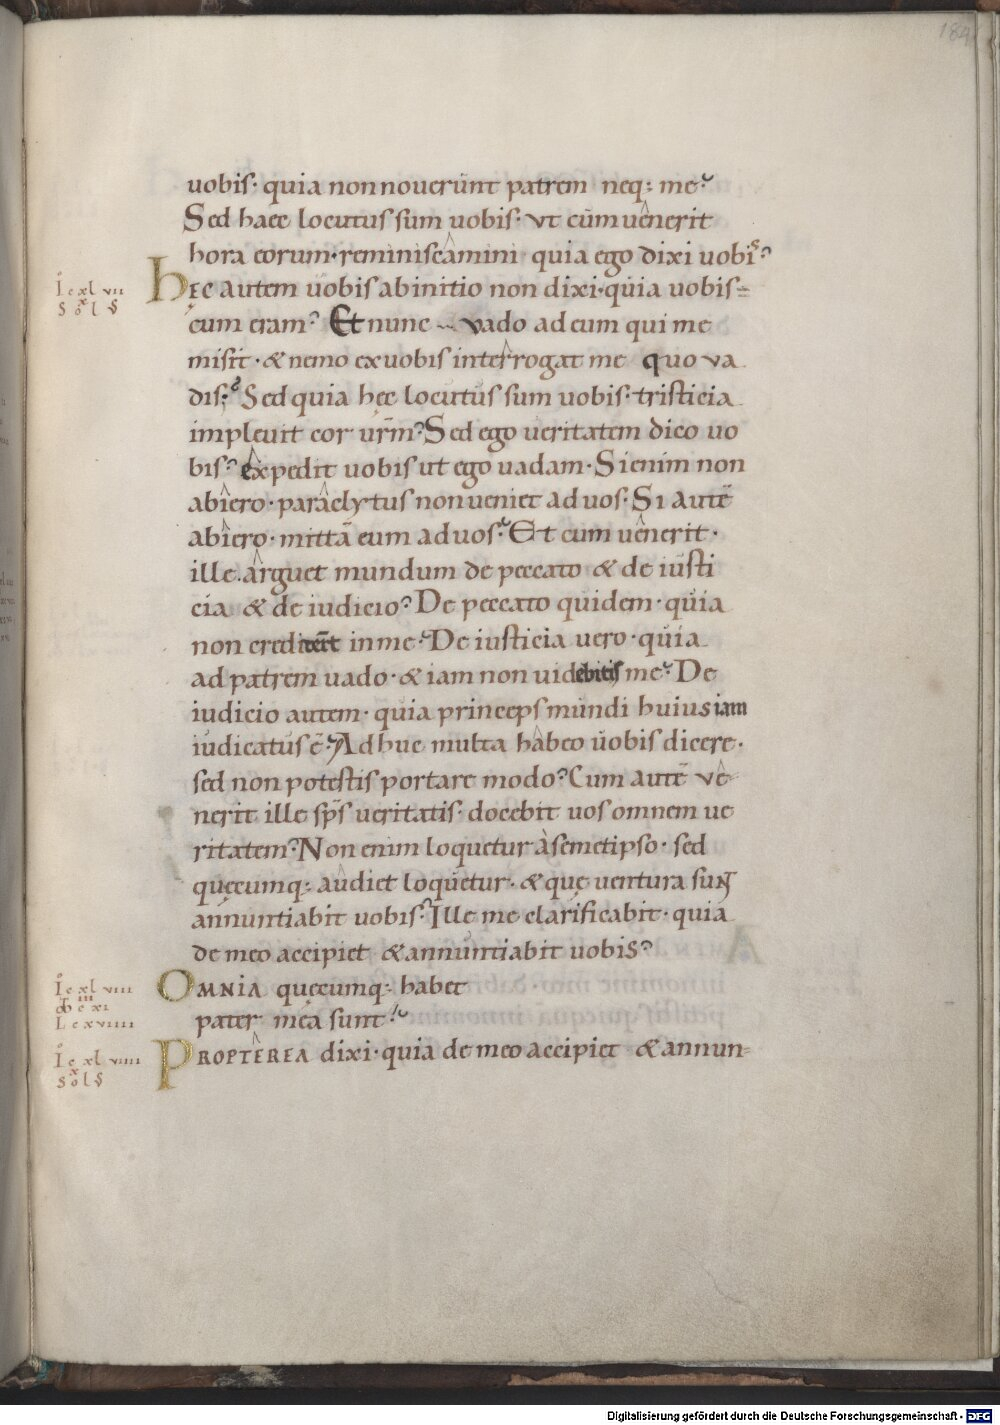 184
uobis· quia non nouerunt patrem neq: me·
Sed haec locutus sum uobis· vt cum uenerit
hora eorum· reminiscamini quia ego dixi uobis?
Hec autem uobis ab initio non dixi· quia uobis-
Io cxlvii
Sol S
cum eram? Et nunc vado ad eum qui me
misit· & nemo ex uobis interrogat me quo va
dis? Sed quia hec locutus sum uobis· tristicia
impleuit cor urm̃? Sed ego ueritatem dico uo
bis? expedit uobis ut ego uadam· Si enim non
abiero· paraclytus non ueniet ad uos· Si autē
abiero· mittā eum ad uos· Et cum uenerit·
ille arguet mundum de peccato & de iusti
cia & de iudicio? De peccato quidem· quia
non credit in me· De iusticia uero· quia
ad patrem uado· & iam non uidebitis me· De
iudicio autem· quia princeps mundi huius iam
iudicatus ē· Adhuc multa habeo uobis dicere·
sed non potestis portare modo? Cum autē ve
nerit ille sp̄s ueritatis· docebit uos omnem ue
ritatem? Non enim loquetur a semetipso· sed
quęcumq: audiet loquetur· & quę uentura sunt
annuntiabit uobis? Ille me clarificabit· quia
de meo accipiet & annuntiabit uobis?
Omnia quęcumq: habet
Io cxlviii
L cxviiii
pater mea sunt·
Propterea dixi· quia de meo accipiet & annun-
Io cxlviiii
Sol S
Digitalisierung gefördert durch die Deutsche Forschungsgemeinschaft - DFG